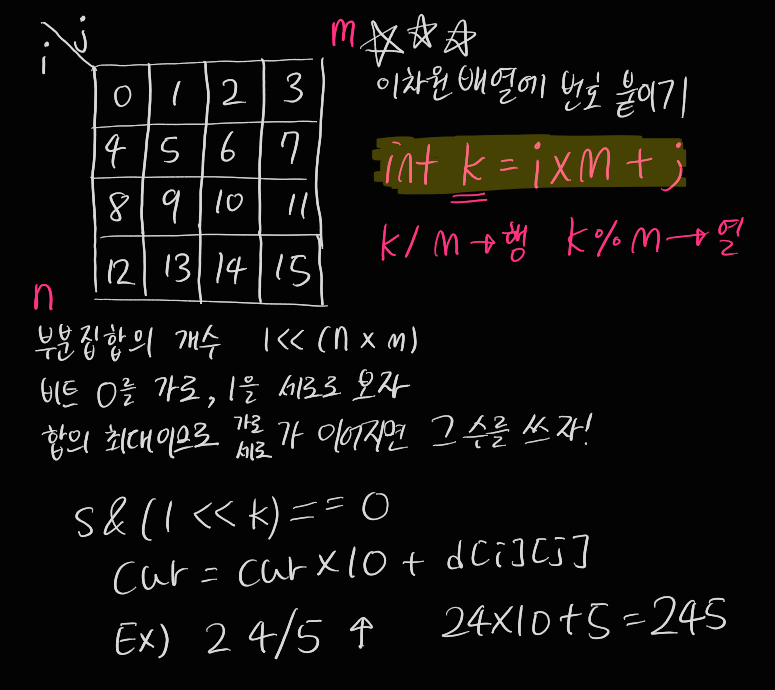 i j m ☆☆☆
이차원 배열에 번호 붙이기
0 1 2 3
4 5 6 7
8 9 10 11
12 13 14 15
n
int k = i x m + j
k / m →행 k % m → 열
부분집합의 개수 1 << (n x m)
비트 0를 가로, 1을 세로로 보자
합의 최대이므로 가로 세로 가 이어지면 그 수를 쓰자!
S & (1 << k) == 0
cur = cur x 10 + d[i][j]
Ex) 2 4/5 ↑ 24x10+5=245